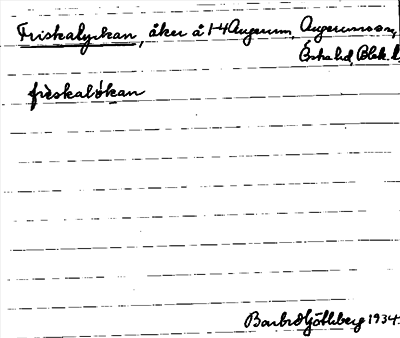 Friskalyckan, åker å 1-4 Augerum, Augerums sn,
Östra hd, Blek. l.
friskalökan
Barbro Göthberg 1934.